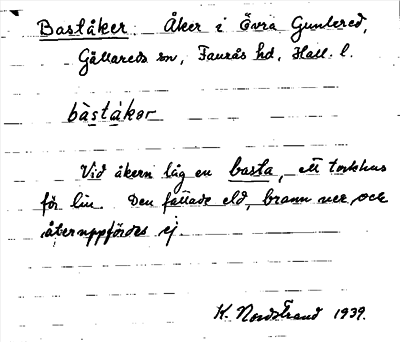 Baståker. Åker i Övra Gunnered,
Gällareds sn, Faurås hd, Hall. l.
bàstákər
Vid åkern låg en basta, ett torkhus
för lin. Den fattade eld, brann ner och
återuppfördes ej.
K. Nordstrand 1939.